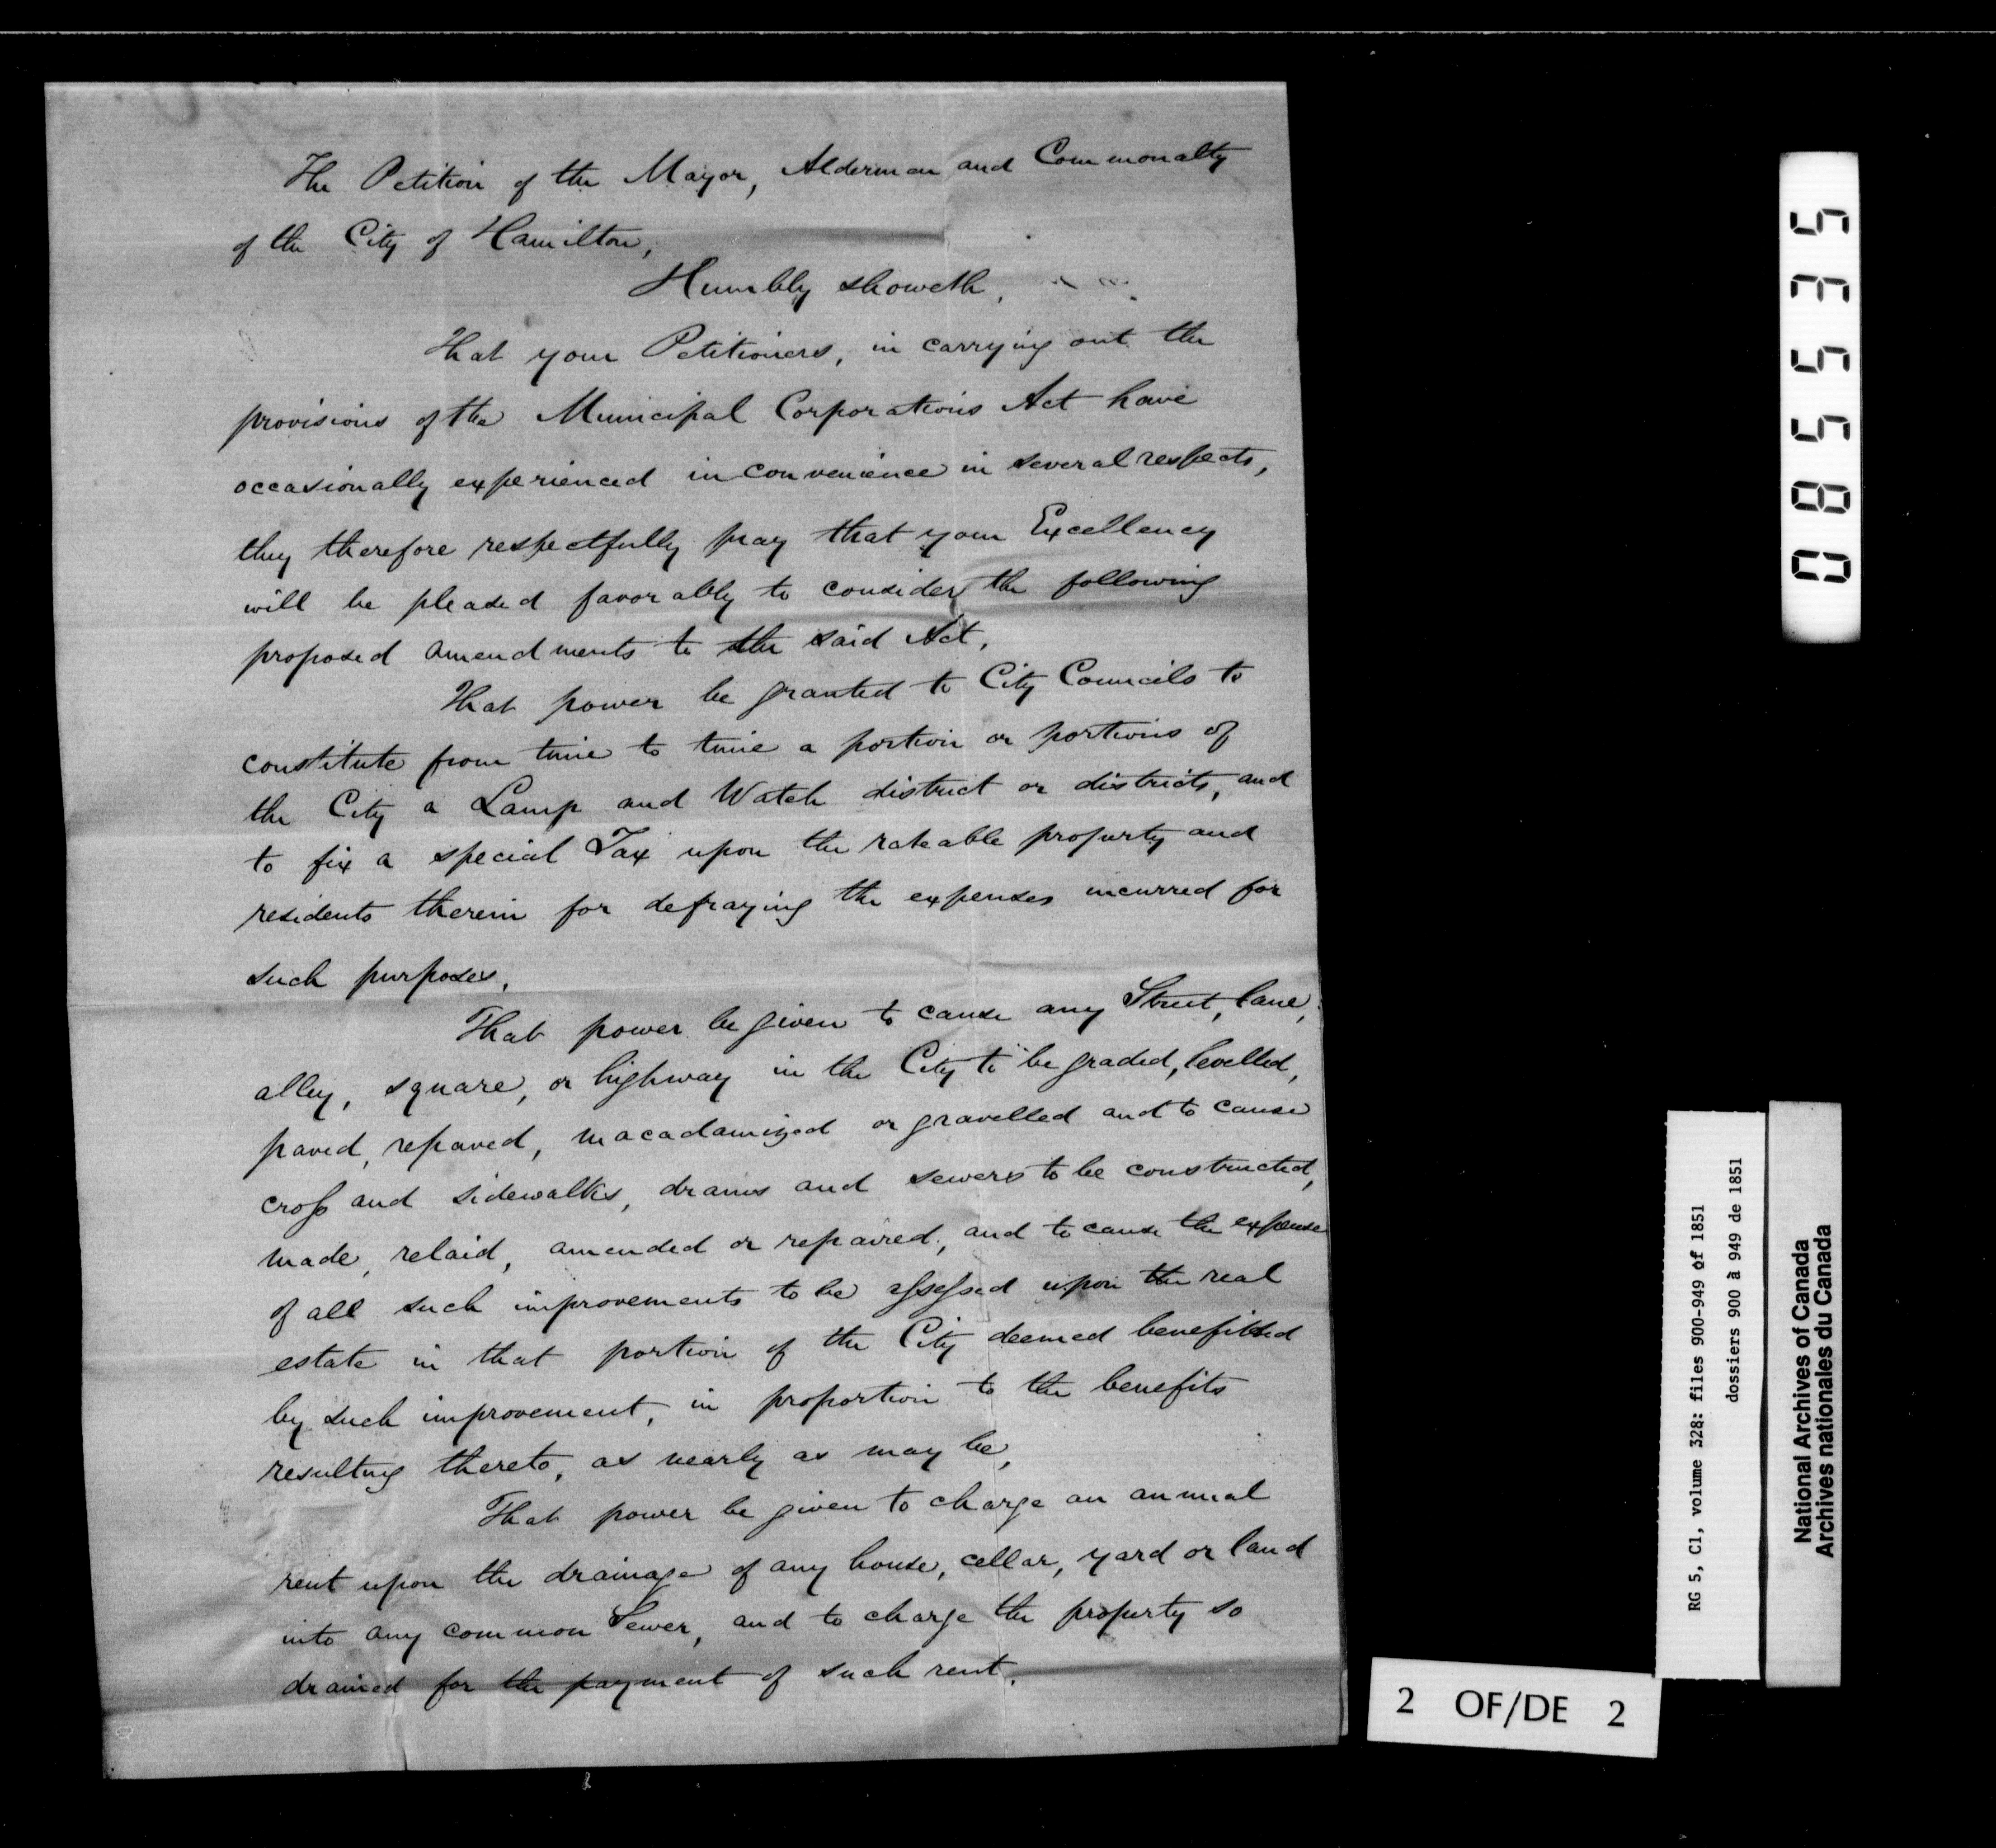 The Petition of the Mayor, Alderman and Commonalty
of the City of Hamilton,
Humbly showeth,
That your Petitioners, in carrying out the
provisions of the Municipal Corporations Act have
occasionally experienced inconvenience in several respects,
they therefore respectfully pray that your Excellency
will be pleased favorably to consider the following
proposed amendments to the said Act,
That power be granted to City Councils to
constitute from time to time a portion or portions of
the City a Lamp and Watch district or districts, and
to fix a special Tax upon the rateable property and
residents therein for defraying the expenses incurred for
such purposes,
That power be given to cause any Street, lane,
alley, square, or highway in the City to be graded, levelled,
paved, repaved, macadamized or gravelled and to cause
cross and sidewalks, drains and sewers to be constructed,
made, relaid, amended or repaired, and to cause the expense
of all such improvements to be assessed upon the real
estate in that portion of the City deemed benefitted
by such improvement, in proportion to the benefits
resulting thereto, as nearly as may be,
That power be given to charge an annual
rent upon the drainage of any house, cellar, yard or land
into any common Sewer, and to charge the property so
drained for the payment of such rent.
085535
RG 5, C1, volume 328: files 900-949 of 1851
dossiers 900 à 949 de 1851
National Archives of Canada
Archives nationales du Canada
2 OF/DE 2